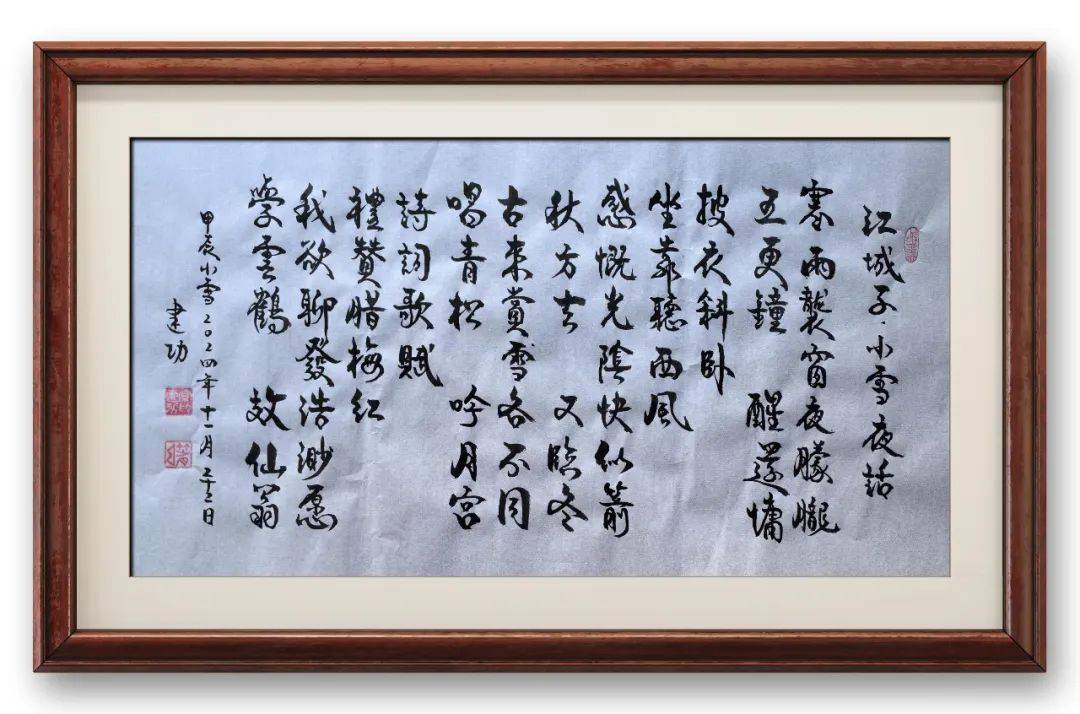 江城子·小雪夜話
寒雨襲窗夜朦朧
五更鐘 醒還慵
披衣斜卧
坐靠聽西風
感慨光陰快似箭
秋方去 又臨冬
古來賞雪各不同
唱青松 吟月宮
詩詞歌賦
禮贊腊梅紅
我欲聊發浩渺愿
學雲鶴 效仙翁
甲辰小雪二〇二四年十一月二十二日
建功